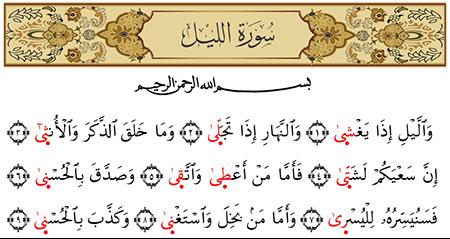 سُورَةُ اللَّيْلِ
بسم الله الرحمن الرحيم
وَٱلَّيْلِ إِذَا يَغْشَىٰ ﴿١﴾ وَٱلنَّهَارِ إِذَا تَجَلَّىٰ ﴿٢﴾ وَمَا خَلَقَ ٱلذَّكَرَ وَٱلْأُنثَىٰٓ ﴿٣﴾
إِنَّ سَعْيَكُمْ لَشَتَّىٰ ﴿٤﴾ فَأَمَّا مَنْ أَعْطَىٰ وَٱتَّقَىٰ ﴿٥﴾ وَصَدَّقَ بِٱلْحُسْنَىٰ ﴿٦﴾
فَسَنُيَسِّرُهُۥ لِلْيُسْرَىٰ ﴿٧﴾ وَأَمَّا مَنۢ بَخِلَ وَٱسْتَغْنَىٰ ﴿٨﴾ وَكَذَّبَ بِٱلْحُسْنَىٰ ﴿٩﴾